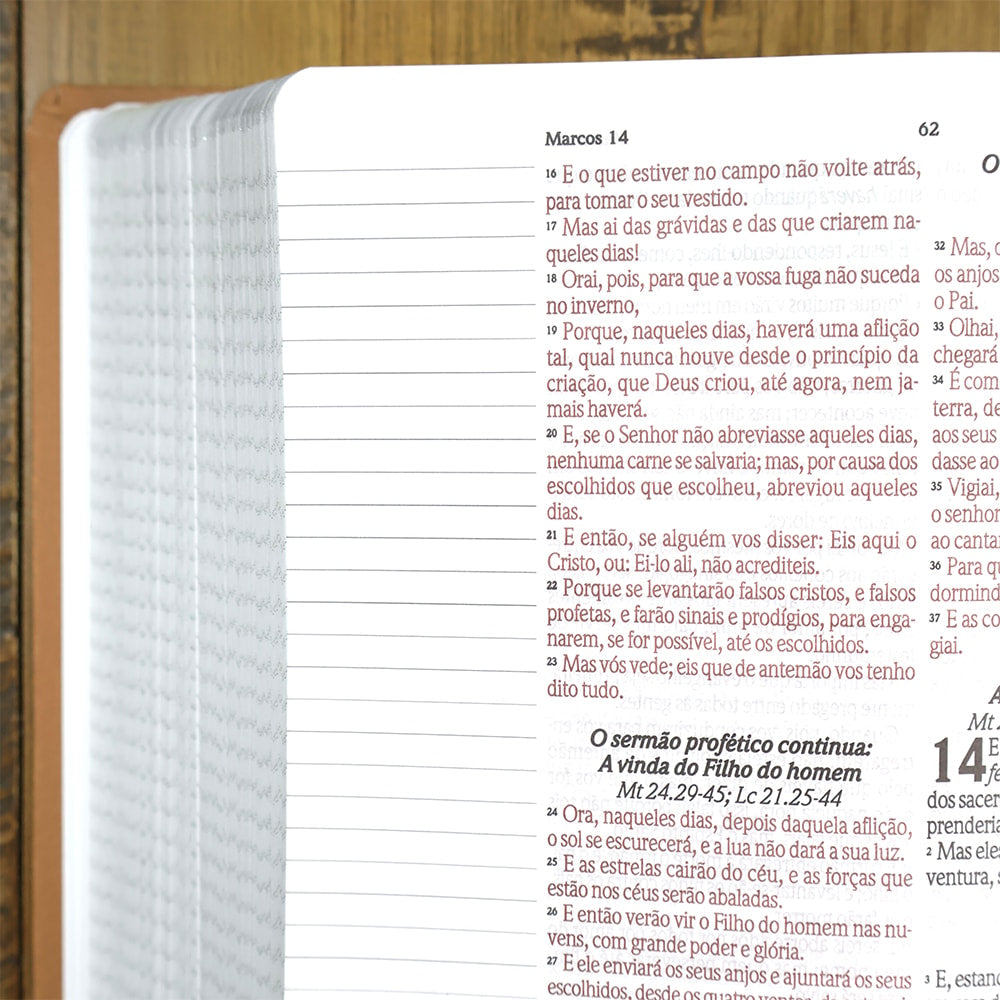 Marcos 14
62
16 E o que estiver no campo não volte atrás,
para tomar o seu vestido.
17 Mas ai das grávidas e das que criarem na-
queles dias!
18 Orai, pois, para que a vossa fuga não suceda
no inverno,
19 Porque, naqueles dias, haverá uma aflição
tal, qual nunca houve desde o princípio da
criação, que Deus criou, até agora, nem ja-
mais haverá.
20 E, se o Senhor não abreviasse aqueles dias,
nenhuma carne se salvaria; mas, por causa dos
escolhidos que escolheu, abreviou aqueles
dias.
21 E então, se alguém vos disser: Eis aqui o
Cristo, ou: Ei-lo ali, não acrediteis.
22 Porque se levantarão falsos cristos, e falsos
profetas, e farão sinais e prodígios, para enga-
narem, se for possível, até os escolhidos.
23 Mas vós vede; eis que de antemão vos tenho
dito tudo.
O sermão profético continua:
A vinda do Filho do homem
Mt 24.29-45; Lc 21.25-44
24 Ora, naqueles dias, depois daquela aflição,
o sol se escurecerá, e a lua não dará a sua luz.
25 E as estrelas cairão do céu, e as forças que
estão nos céus serão abaladas.
26 E então verão vir o Filho do homem nas nu-
vens, com grande poder e glória.
27 E ele enviará os seus anjos e ajuntará os seus
escolhidos, desde os quatro ventos, da
O
32 Mas,
os anjos
o Pai.
33 Olhai,
chegará
34 É com
terra, de
aos seus
dasse ao
35 Vigiai,
o senhor
ao canta
36 Para qu
dormind
37 E as co
giai.
A
Mt
14 E
fe
dos sacer
prenderia
2 Mas eles
ventura, s
3 E, estand